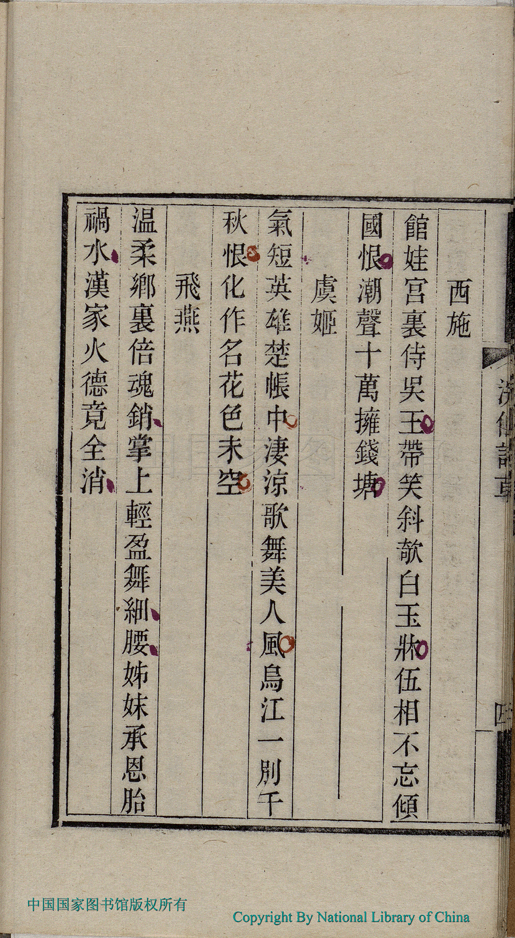 西施
館娃宮裏侍吳王帶笑斜欹白玉牀伍相不忘傾
國恨潮聲十萬擁錢塘
虞姬
氣短英雄楚帳中淒涼歌舞美人風烏江一別千
秋恨化作名花色未空
飛燕
温柔鄉裏倍魂銷掌上輕盈舞細腰姊妹承恩胎
禍水漢家火德竟全消
中国国家图书馆版权所有
Copyright By National Library of China